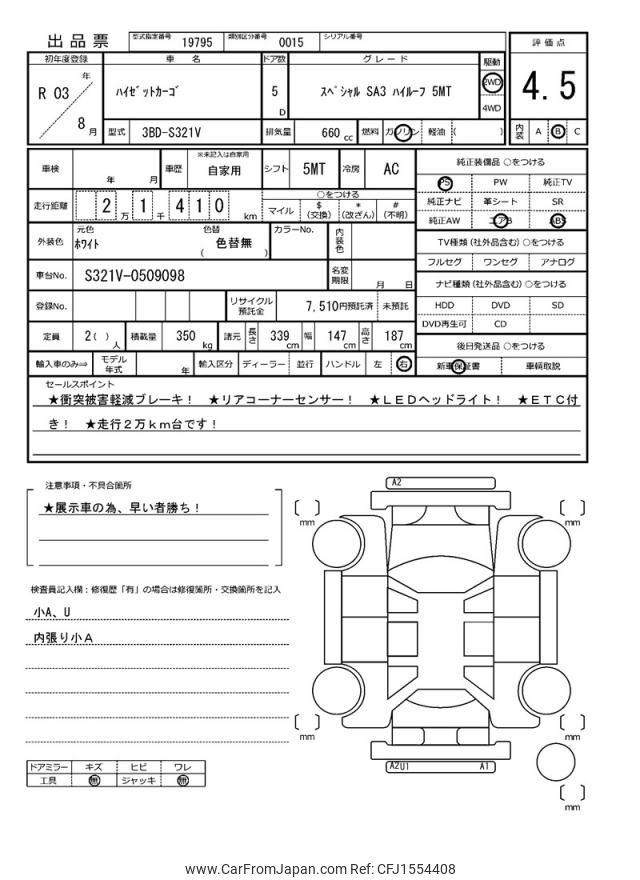 出品票 型式指定番号 19795 類別区分番号 0015 シリアル番号
初年度登録 車名 ドア数 グレード 駆動 評価点
R 03 年 8 月 ハイゼットカーゴ 5 D スペシャル SA3 ハイルーフ 5MT 2WD 4WD 4.5
型式 3BD-S321V 排気量 660 cc 燃料 ガソリン 軽油 ( ) 内装 A B C
車検 年 月 車歴 ※未記入は自家用 自家用 シフト 5MT 冷房 AC
走行距離 2 万 1 千 4 1 0 km
○をつける
マイル $ (交換) * (改ざん) # (不明)
外装色 元色 ホワイト 色替 色替無 ( ) カラーNo. 内装色
車台No. S321V-0509098 名変期限 月 日
登録No. リサイクル預託金 7,510円預託済 未預託
定員 2( ) 人 積載量 350 kg 諸元 長さ 339 cm 幅 147 cm 高さ 187 cm
輸入車のみ⇨ モデル年式 年 輸入区分 ディーラー 並行 ハンドル 左 右
純正装備品 ○をつける
PS PW 純正TV
純正ナビ 革シート SR
純正AW エアB ABS
TV種類 (社外品含む) ○をつける
フルセグ ワンセグ アナログ
ナビ種類 (社外品含む) ○をつける
HDD DVD SD
DVD再生可 CD
後日発送品 ○をつける
新車保証書 車輌取説
セールスポイント
★衝突被害軽減ブレーキ! ★リアコーナーセンサー! ★LEDヘッドライト! ★ETC付
き! ★走行2万km台です!
注意事項・不具合箇所
★展示車の為、早い者勝ち!
検査員記入欄:修復歴「有」の場合は修復箇所・交換箇所を記入
小A、U
内張り小A
ドアミラー キズ ヒビ ワレ
工具 無 ジャッキ 無
A2
〔 〕 mm 〔 〕 mm
〔 〕 mm 〔 〕 mm
A2U1 A1
〔 〕 mm
www.CarFromJapan.com Ref: CFJ1554408